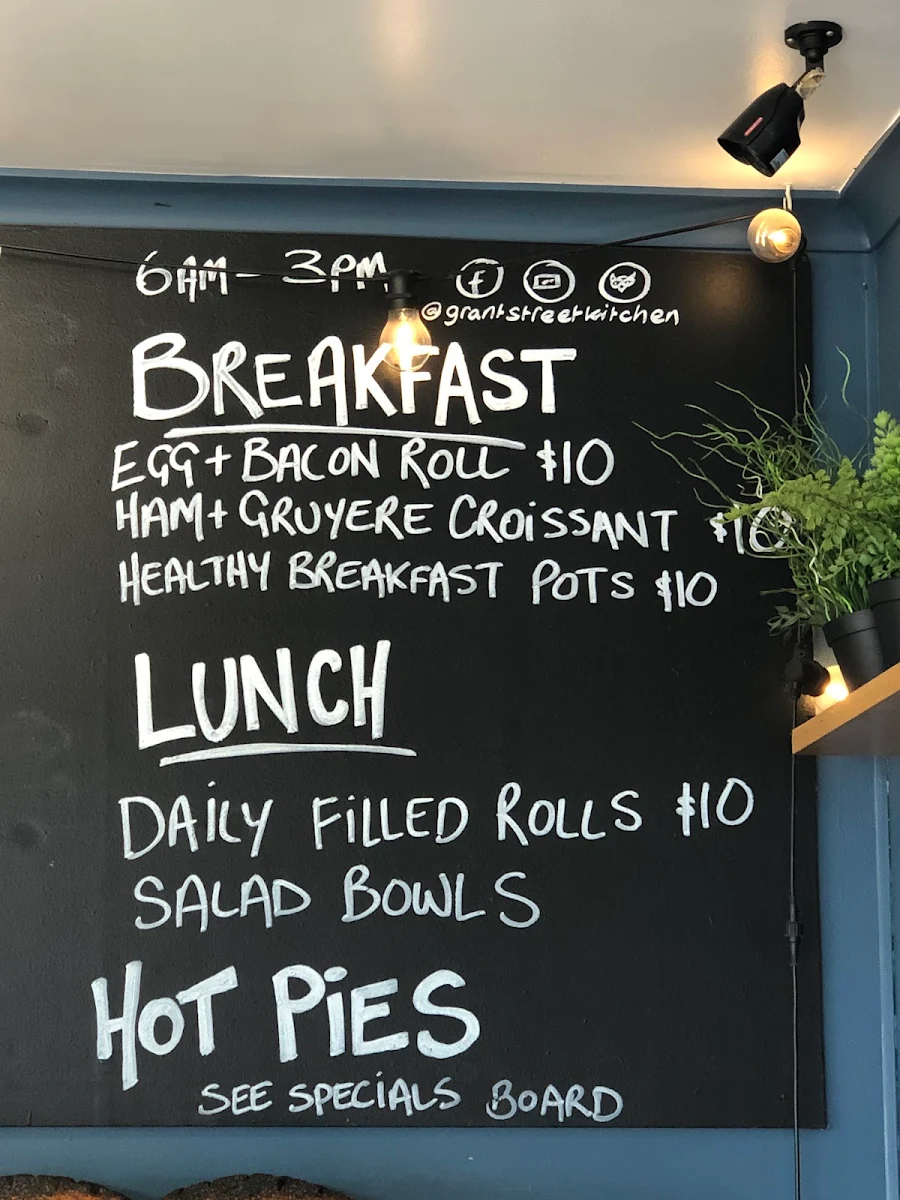 6AM - 3PM
@grantstreetkitchen
BREAKFAST
EGG + BACON ROLL $10
HAM + GRUYERE CROISSANT $10
HEALTHY BREAKFAST POTS $10
LUNCH
DAILY FILLED ROLLS $10
SALAD BOWLS
HOT PIES
SEE SPECIALS BOARD